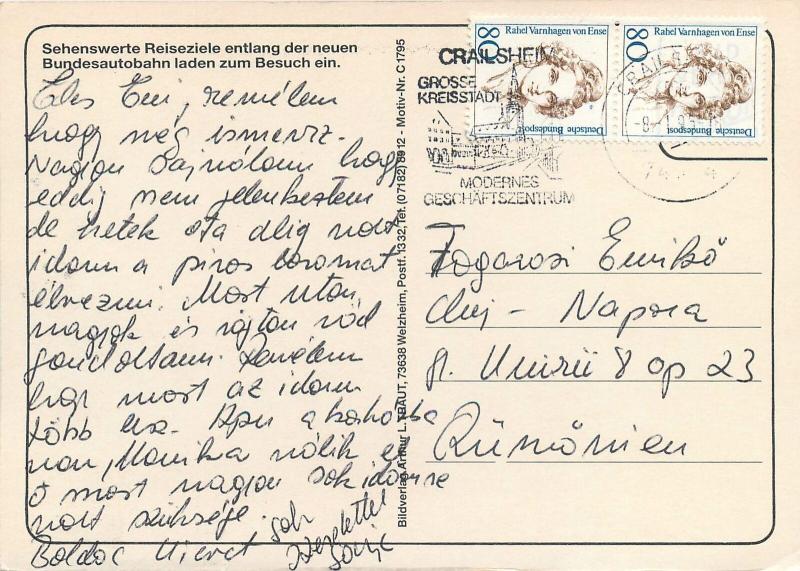 Sehenswerte Reiseziele entlang der neuen
Bundesautobahn laden zum Besuch ein.
Édes Emi, remélem
hogy még ismersz.
Nagyon sajnálom hogy
eddig nem jelenkeztem
de hetek óta alig volt
idom a piros
élvezni. Most
és rögtön rád
gondoltam. Remélem
hogy most az idom
több lesz. Apu a korházba
van, Monika nálik
ő most nagyon sok idöre
volt szüksége.
Boldog
sok
szeretettel
Bildverlag Arthur L. TRAUT, 73638 Welzheim, Postf. 1332, Tel. (07182) 8912 - Motiv-Nr. C 1795
CRAILSHEIM
GROSSE
KREISSTADT
MODERNES
GESCHÄFTSZENTRUM
80
Rahel Varnhagen von Ense
Deutsche Bundespost
80
Rahel Varnhagen von Ense
Deutsche Bundespost
Fogarosi Emikö
Cluj - Napoca
8 ap 23
Rümänien